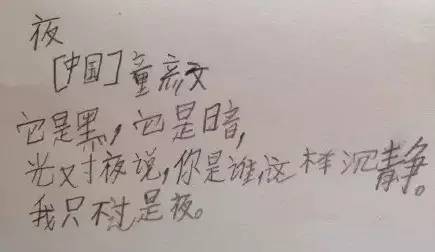 夜
[中国]童亮文
它是黑,它是暗,
光对夜说,你是谁,这样沉静。
我只不过是夜。